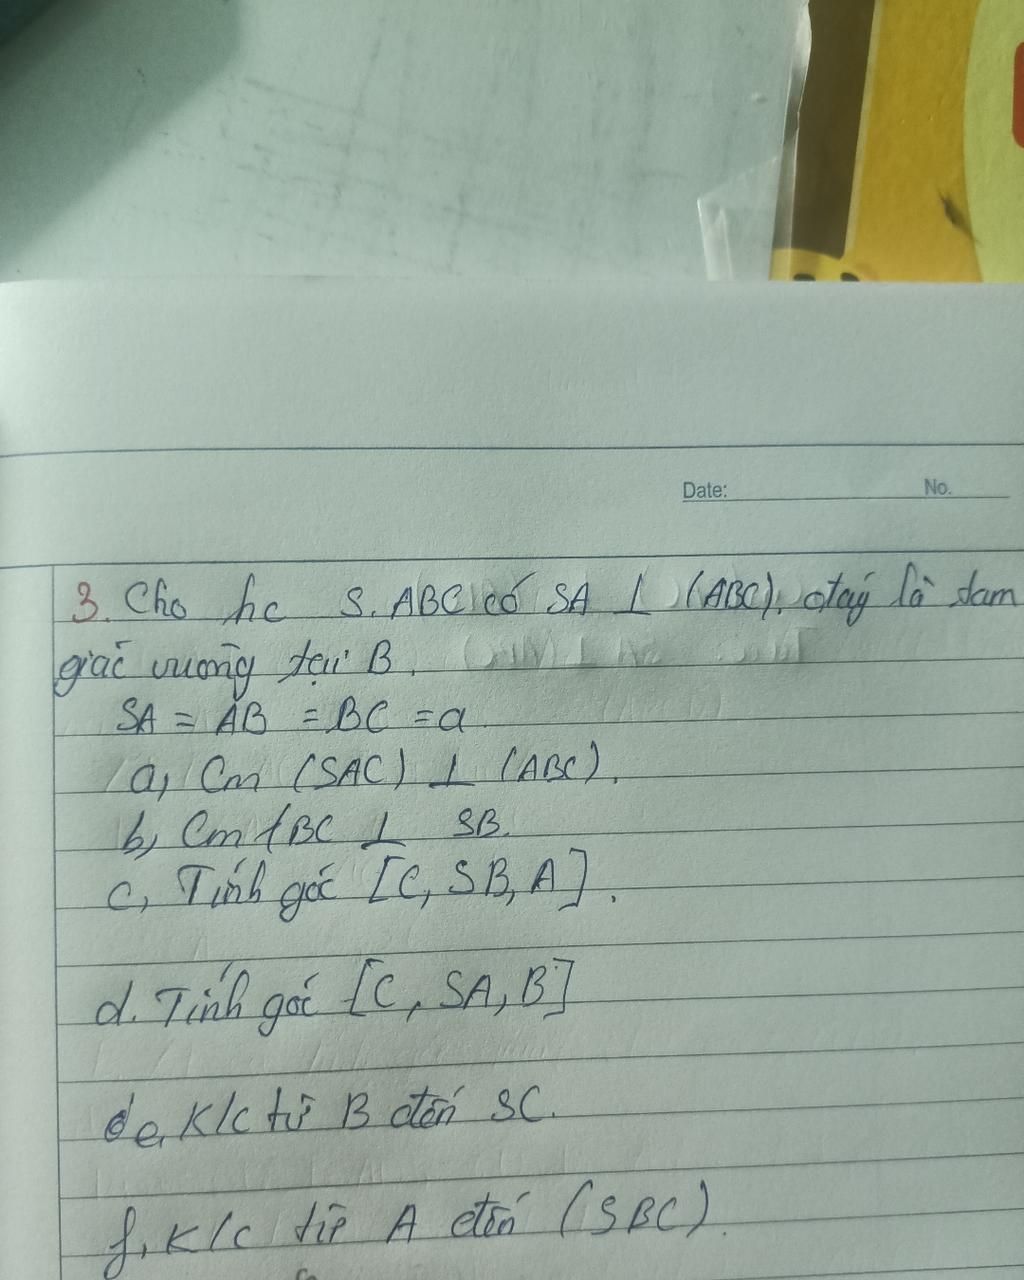 Date: No.
3. Cho hc S.ABC có SA ⊥ (ABC), đáy là tam
giác vuông tại B.
SA = AB = BC = a
a, Cm (SAC) ⊥ (ABC).
b, Cm BC ⊥ SB.
c, Tính góc [C, SB, A].
d. Tính góc [C, SA, B]
e, K/c từ B đến SC.
f, K/c từ A đến (SBC).